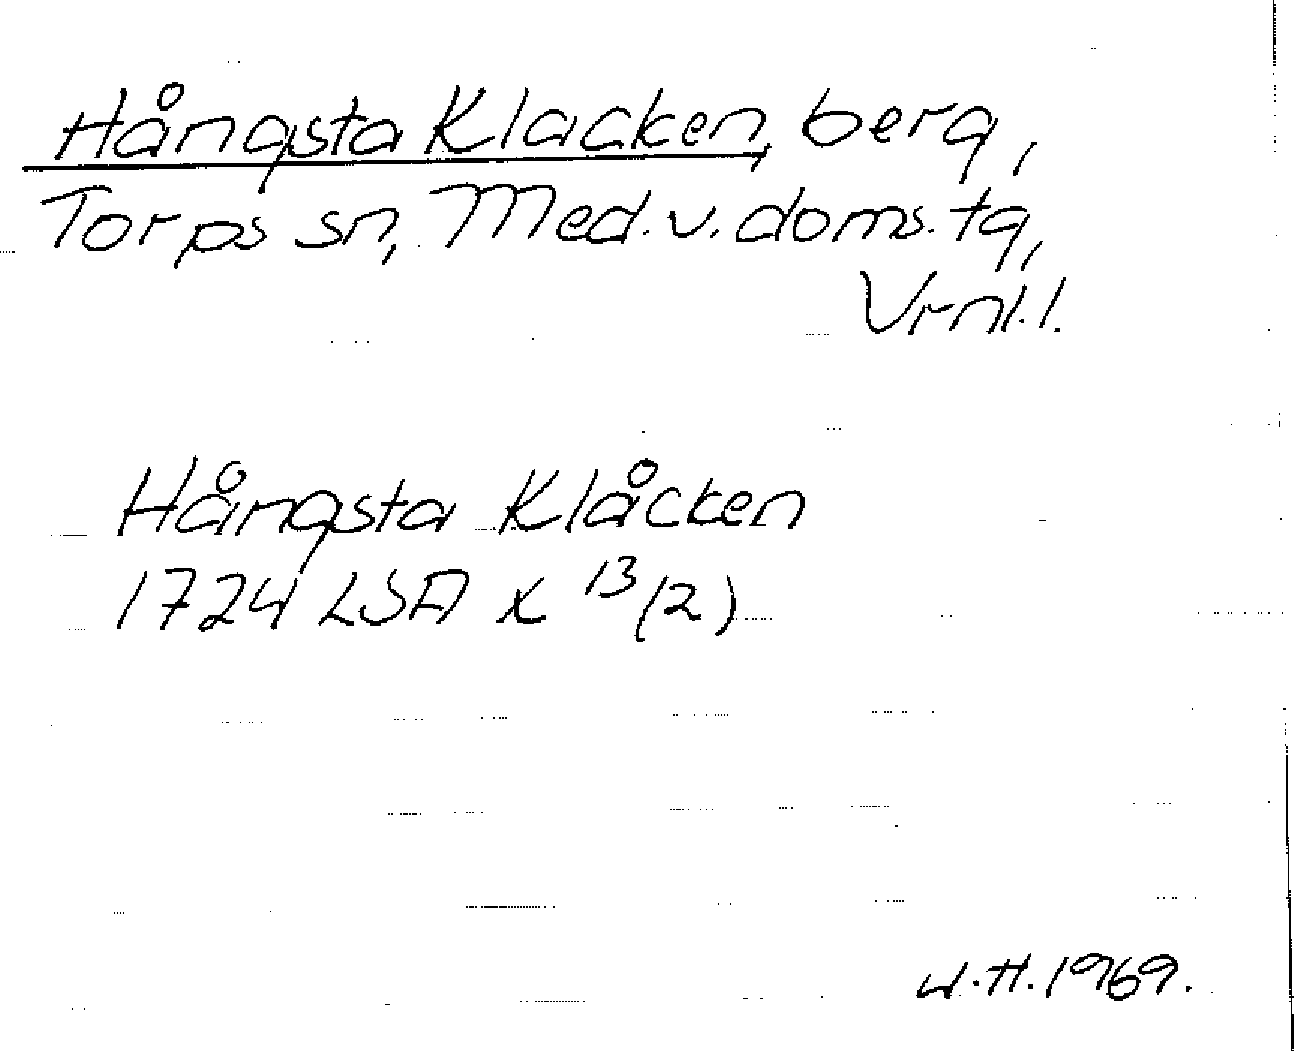 Hångsta Klacken, berg,
Torps sn, Med. v. doms. tg,
Vrnl. l.
Hångsta Klåcken
1724 LSA X 13 (2)
H. 1969.